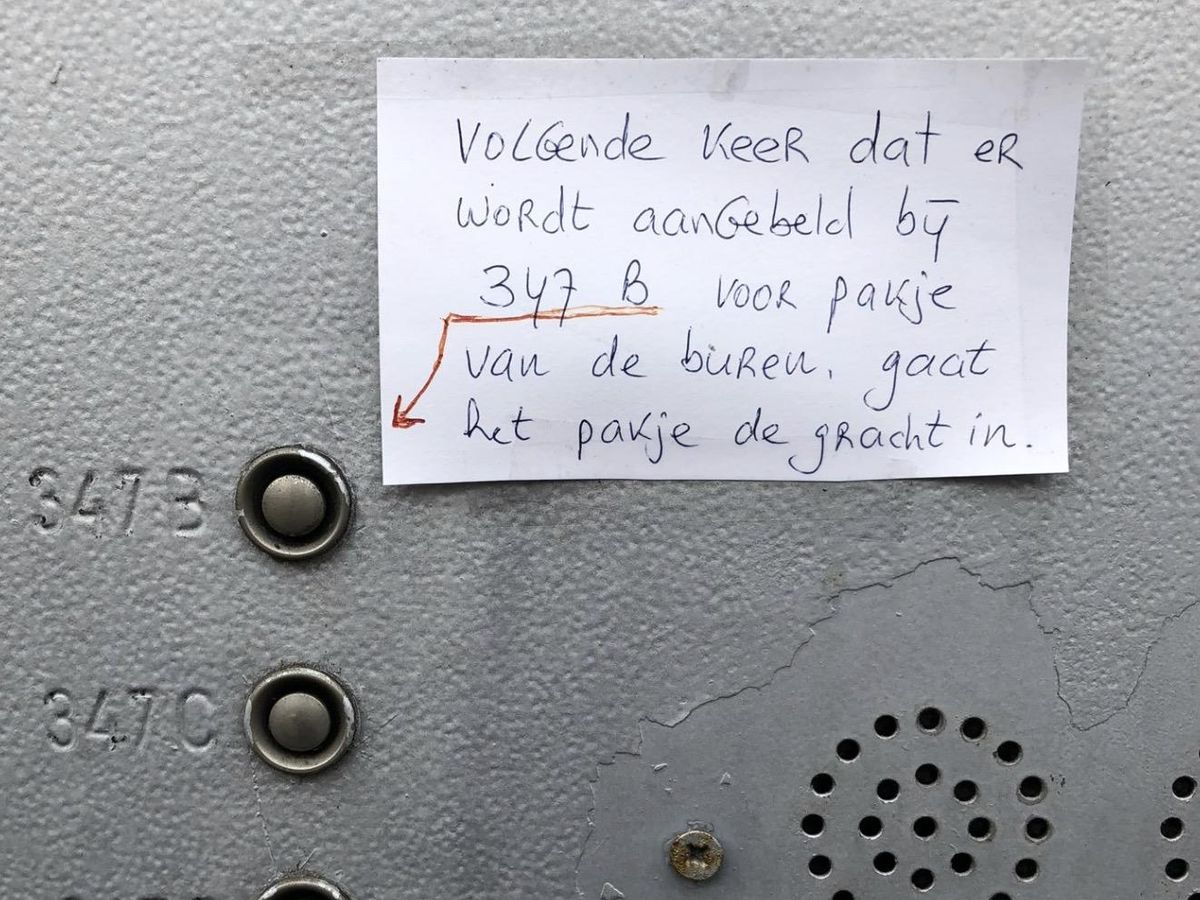 Volgende keer dat er
wordt aangebeld bij
347 B voor pakje
van de buren, gaat
het pakje de gracht in.
347 B
347 C